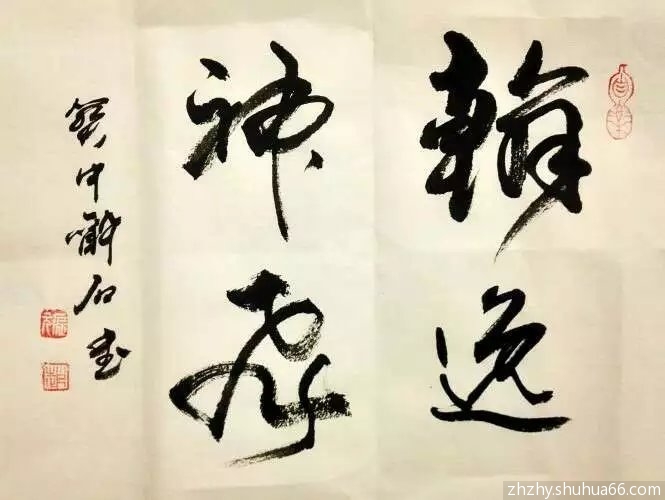 翰逸
神飛
中 石書
zhzhy.shuhua66.com